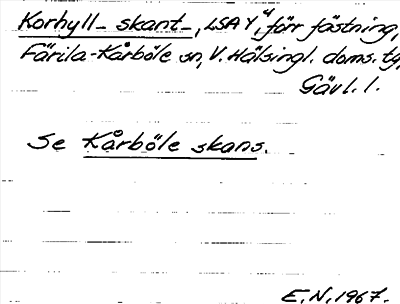 Korhyll- skant-, LSA Y 4, förr fästning,
Färila-Kårböle sn, V. Hälsingl. doms. tg,
Gävl. l.
Se Kårböle skans.
E.N. 1967.